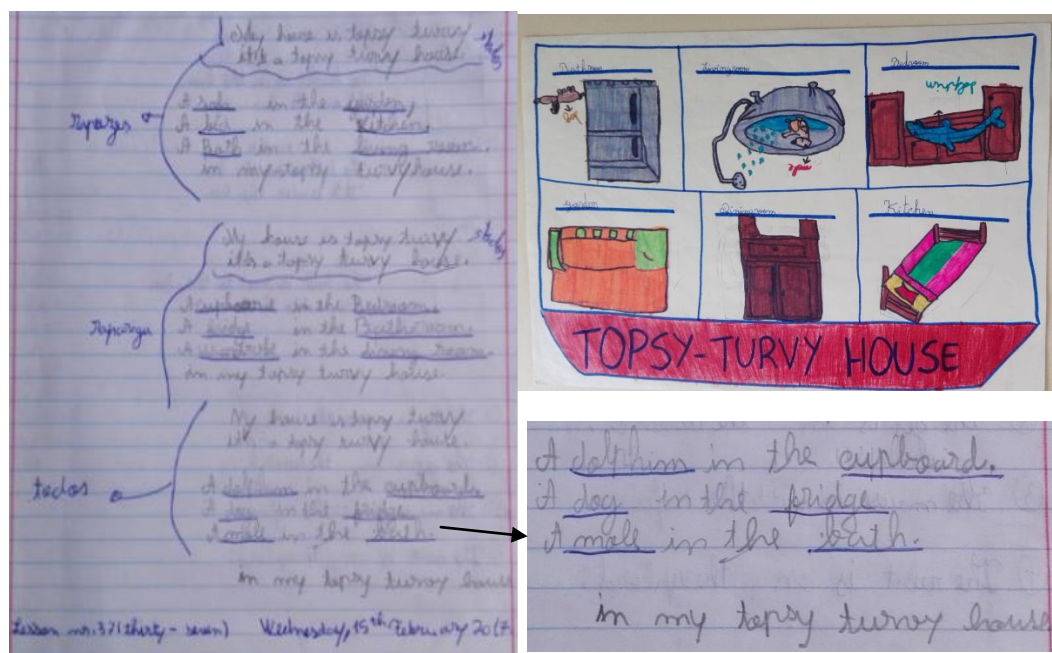 My house is topsy turvy
it's a topsy turvy house.
rapazes
A sofa in the garden,
A bed in the Kitchen,
A Bath in the living room.
in my topsy turvy house.
My house is topsy turvy
it's a topsy turvy house.
A cupboard in the Bedroom,
A fridge in the Bathroom,
A in the dining room.
in my topsy turvy house.
My house is topsy turvy
it's a topsy turvy house.
todos
A dolphim in the cupboard.
A dog in the fridge
A mole in the bath.
in my topsy turvy house
Lesson nr. 37 (thirty-seven) Wednesday, 15th February 20
Bathroom
Livingroom
Bedroom
dog
dolphin
Garden
Diningroom
Kitchen
TOPSY-TURVY HOUSE
A dolphim in the cupboard.
A dog in the fridge
A mole in the bath.
in my topsy turvy house